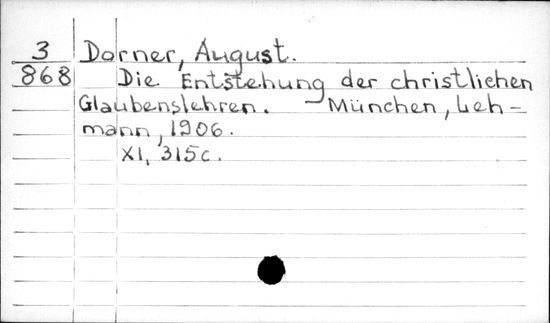 3 Dorner, August.
868 Die Entstehung der christlichen
Glaubenslehren. – München, Leh-
mann, 1906.
XI, 315c.